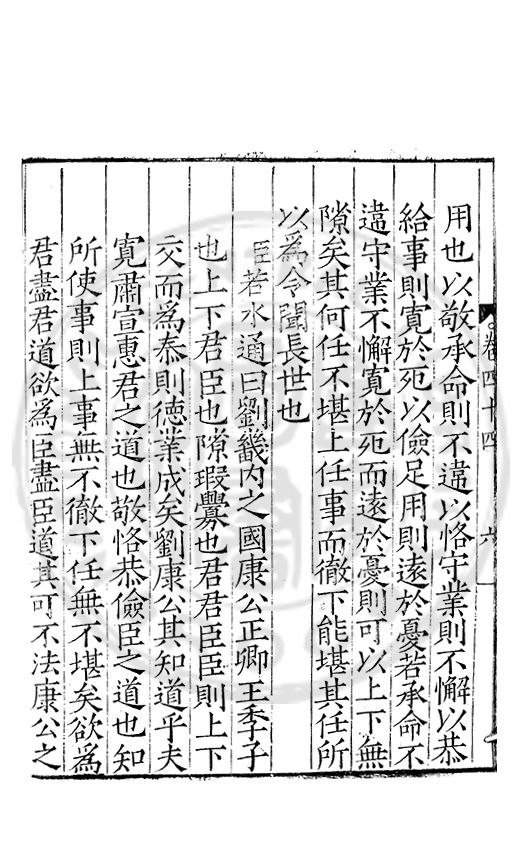 卷四十四 六
用也以敬承命則不違以恪守業則不懈以恭
給事則寛於死以儉足用則遠於憂若承命不
違守業不懈寛於死而遠於憂則可以上下無
隙矣其何任不堪上任事而徹下能堪其任所
以為令聞長世也
臣若水通曰劉畿内之國康公正卿王季子
也上下君臣也隙瑕釁也君君臣臣則上下
交而為泰則德業成矣劉康公其知道乎夫
寛肅宣惠君之道也敬恪恭儉臣之道也知
所使事則上事無不徹下任無不堪矣欲為
君盡君道欲為臣盡臣道其可不法康公之